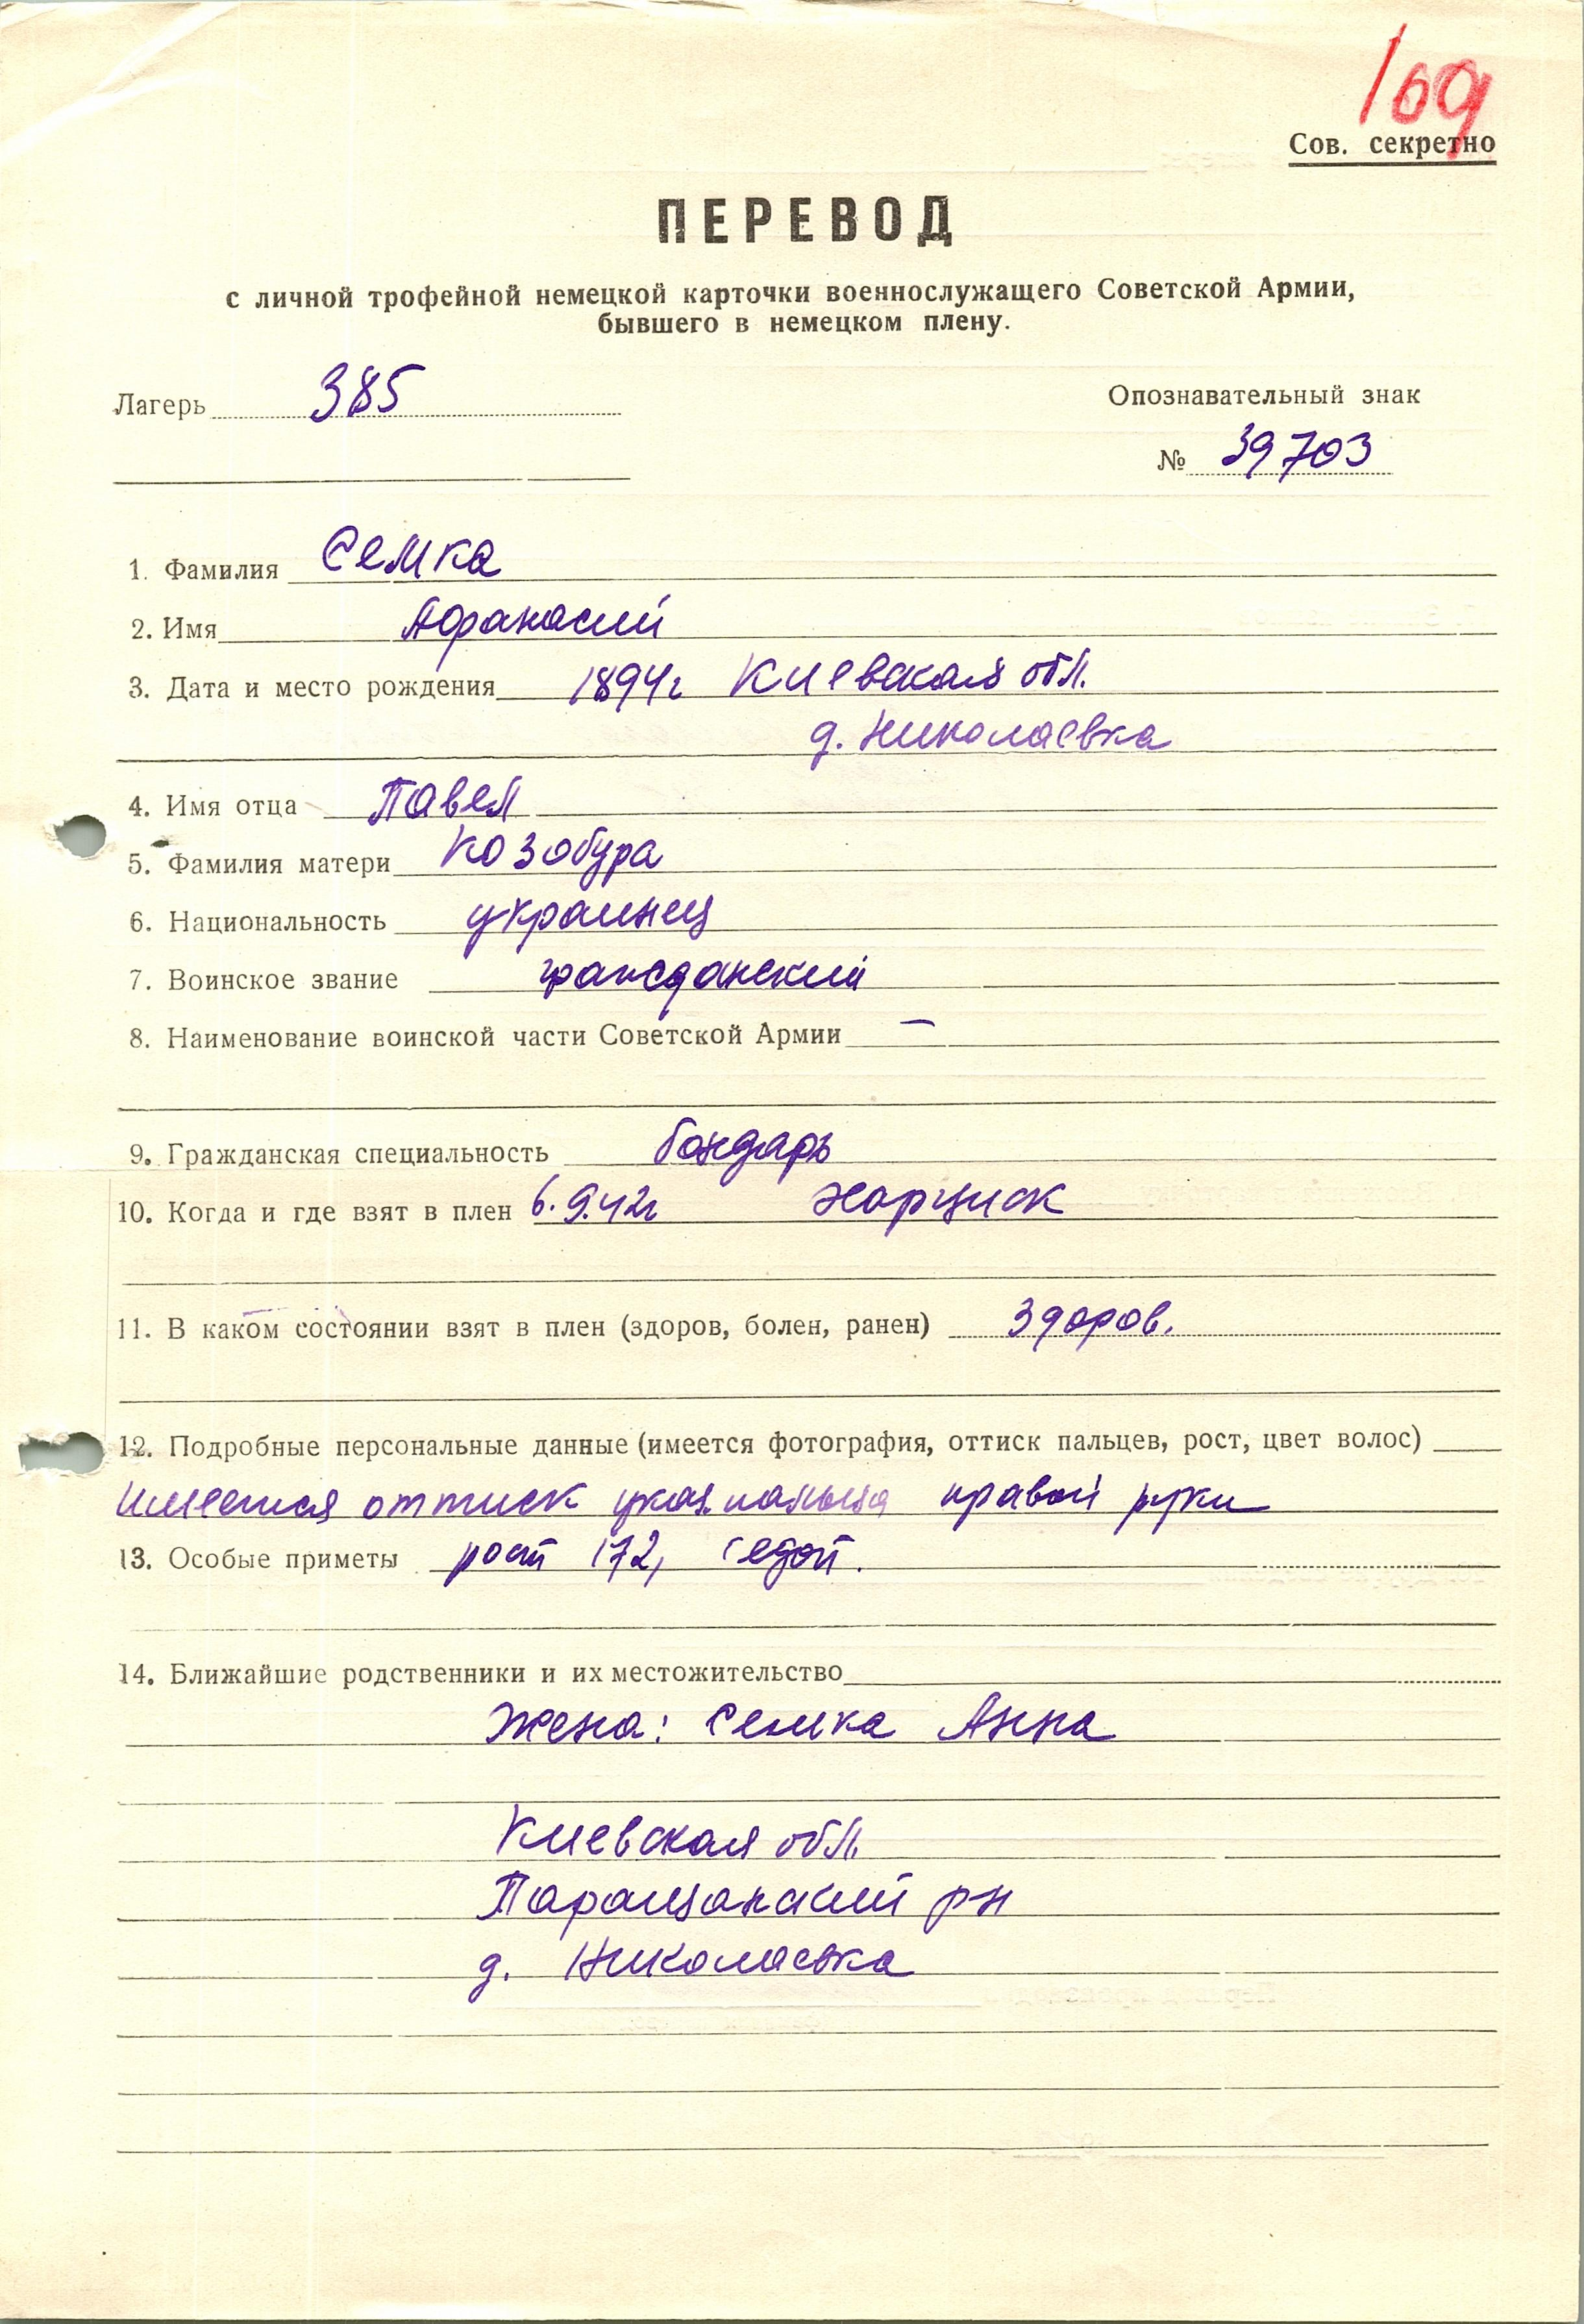 169
Сов. секретно
ПЕРЕВОД
с личной трофейной немецкой карточки военнослужащего Советской Армии,
бывшего в немецком плену.
Лагерь 385
Опознавательный знак
№ 39703
1. Фамилия Семка
2. Имя Афанасий
3. Дата и место рождения 1894г Киевская обл.
д. Николаевка
4. Имя отца Павел
5. Фамилия матери Козобура
6. Национальность украинец
7. Воинское звание гражданский
8. Наименование воинской части Советской Армии —
9. Гражданская специальность бондарь
10. Когда и где взят в плен 6.9.42г Харциск
11. В каком состоянии взят в плен (здоров, болен, ранен) здоров.
12. Подробные персональные данные (имеется фотография, оттиск пальцев, рост, цвет волос)
имеется оттиск указ. пальца правой руки
13. Особые приметы рост 172, седой.
14. Ближайшие родственники и их местожительство
Жена: Семка Анна
Киевская обл.
Паращанский рн
д. Николаевка